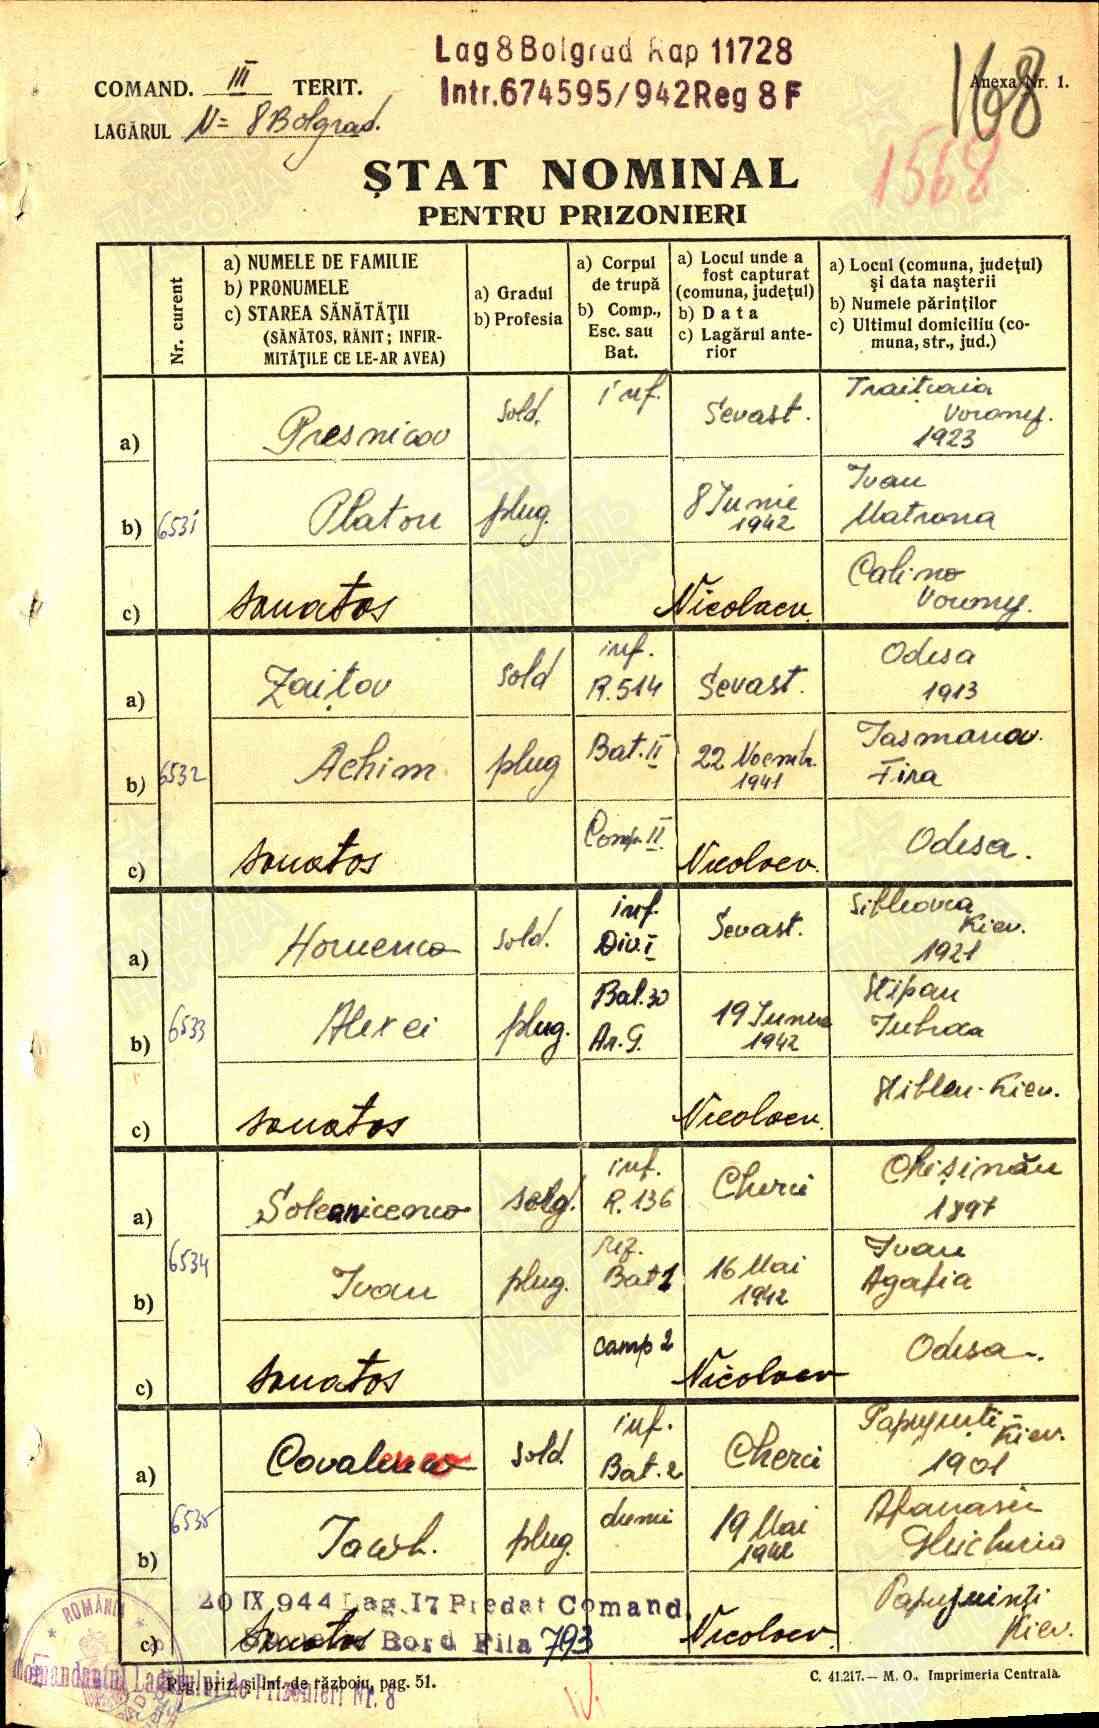 Lag 8 Bolgrad Rap 11728
Intr. 674595/942 Reg 8 F
COMAND. III TERIT.
Anexa Nr. 1.
168
LAGĂRUL N= 8 Bolgrad.
1568
ŞTAT NOMINAL
PENTRU PRIZONIERI
Nr. curent
a) NUMELE DE FAMILIE
b) PRONUMELE
c) STAREA SĂNĂTĂŢII
(SĂNĂTOS, RĂNIT; INFIR-
MITĂŢILE CE LE-AR AVEA)
a) Gradul
b) Profesia
a) Corpul
de trupă
b) Comp.,
Esc. sau
Bat.
a) Locul unde a
fost capturat
(comuna, judeţul)
b) Data
c) Lagărul ante-
rior
a) Locul (comuna, judeţul)
şi data naşterii
b) Numele părinţilor
c) Ultimul domiciliu (co-
muna, str., jud.)
6531
a) Presnicov sold. inf. Sevast.
1923
b) Platon plug. 8 Iunie
1942
Ivan
Matrona
c) sanatos Nicolaev.
Calino
6532
a) Zaiţov sold inf.
R. 514
Sevast.
Odesa
1913
b) Achim plug Bat. II 22 Noemb.
1941
Fira
c) sanatos Comp. II Nicolaev.
Odesa.
6533
a) Homenco sold. inf.
Div. I
Sevast.
Kiev.
1921
b) Alexei plug. Bat. 30
Ar. G.
19 Iunie
1942
Stipan
c) sanatos Nicolaev.
Kiev.
6534
a) Soleanicenco sold. inf.
R. 136
Cherci
Chişinău
1897
b) Ivan plug. Bat 1
16 Mai
1942
Ivan
Agafia
c) sanatos comp 2 Nicolaev
Odesa.
6535
a) Covalenco sold. inf.
Bat. 2
Cherci
Kiev.
1901
b) Iacob. plug.
19 Mai
1942
Afanasii
c) sanatos Nicolaev.
Kiev.
20 IX 944 Lag. 17 Predat Comand.
Bord Fila 793
ROMÂNIA
Comandantul Lagărului de Prizonieri Nr. 8
Reg. priz. şi inf. de războiu, pag. 51.
C. 41.217.— M. O., Imprimeria Centrala.